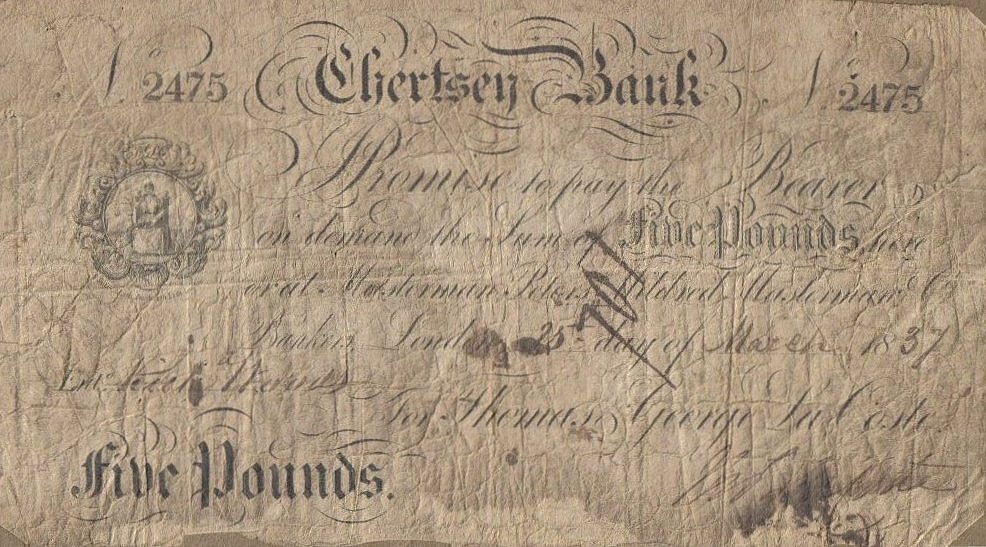 N. 2475 Chertsey Bank N. 2475
I Promise to pay the Bearer
on demand the Sum of Five Pounds, here
or at Masterman, Peters, Mildred, Masterman & Co
Bankers London 25 day of March 1837
Entd
For Thomas George La Coste
Five Pounds.